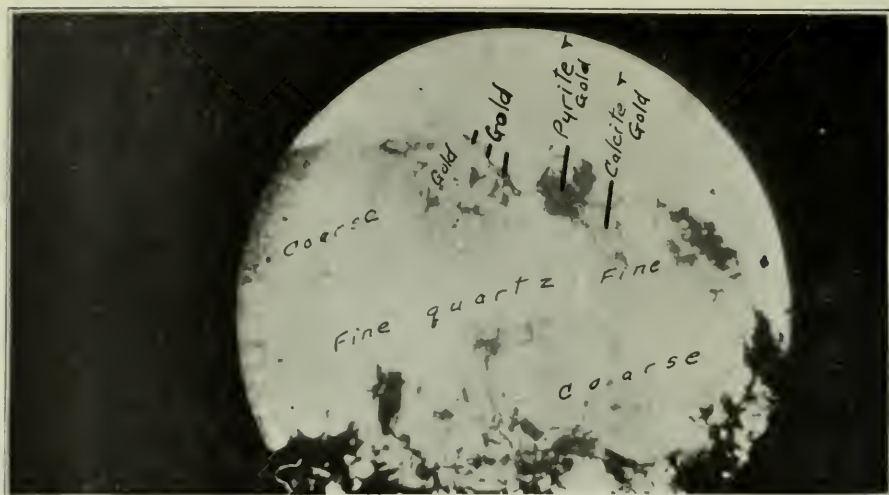 Gold
Gold
Pyrite &
Gold
Calcite &
Gold
Coarse
Fine quartz Fine
Coarse